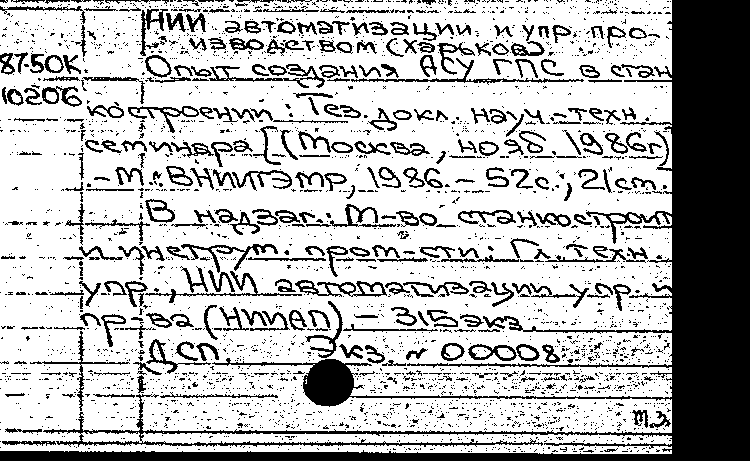 НИИ автоматизации и упр. про-
изводством (Харьков).
87-50К Опыт создания АСУ ГПС в стан
10206
костроении : Тез. докл. науч.-техн.
семинара [(Москва, нояб. 1986г)]
. - М.: ВНИИТЭМР, 1986. - 52с.; 21см.
В надзаг.: М-во станкостроит
и инструм. пром-сти. Гл. техн.
упр., НИИ автоматизации упр. и
пр-ва (НИИАП). - 315экз.
ДСП. Экз. № 00008.
т.з.